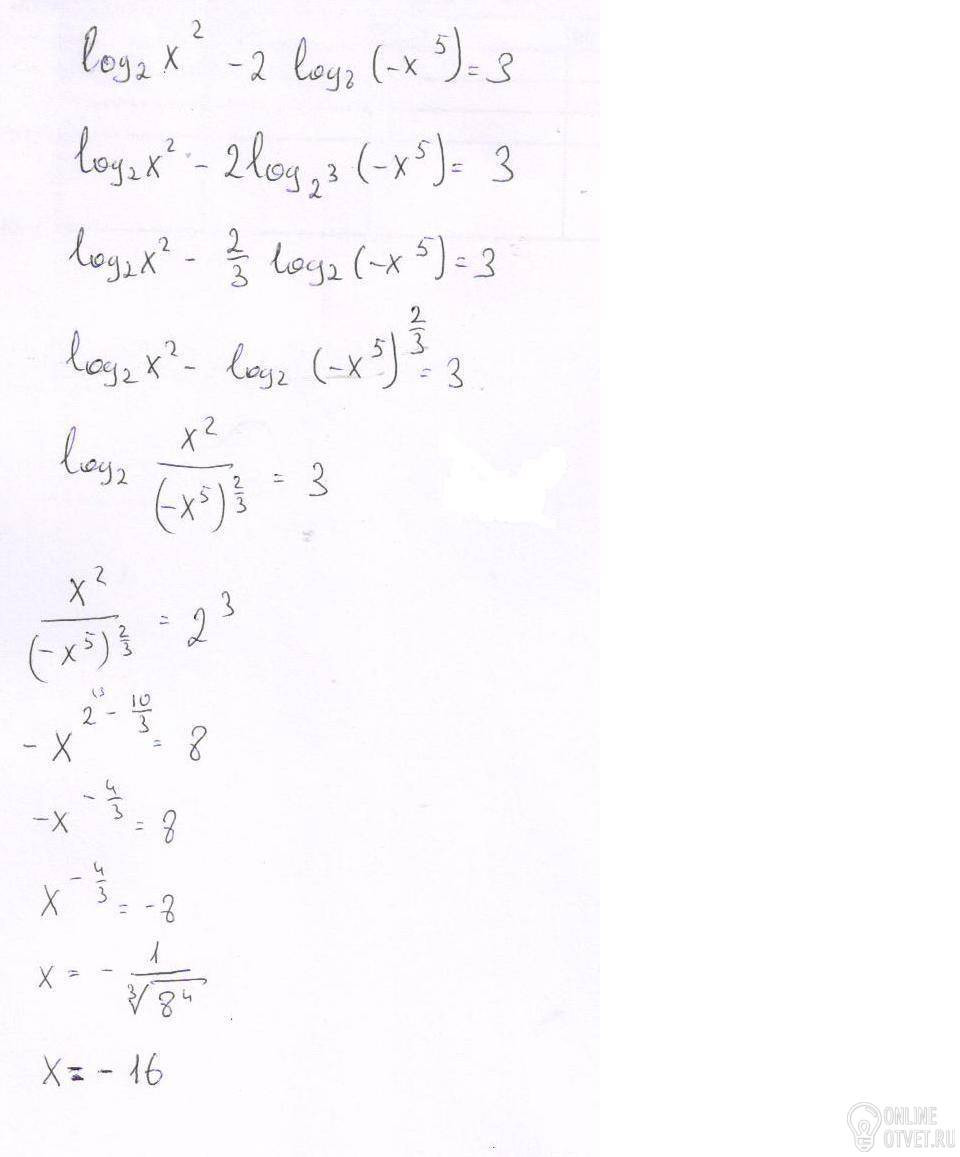 log₂ x² - 2 log₈ (-x⁵) = 3
log₂ x² - 2 log₂³ (-x⁵) = 3
log₂ x² - 2/3 log₂ (-x⁵) = 3
log₂ x² - log₂ (-x⁵)^(2/3) = 3
log₂ x²/(-x⁵)^(2/3) = 3
x²/(-x⁵)^(2/3) = 2³
-x^(2-10/3) = 8
-x^(-4/3) = 8
x^(-4/3) = -8
x = - 1/∛8⁴
x = - 16
ONLINE
OTVET.RU